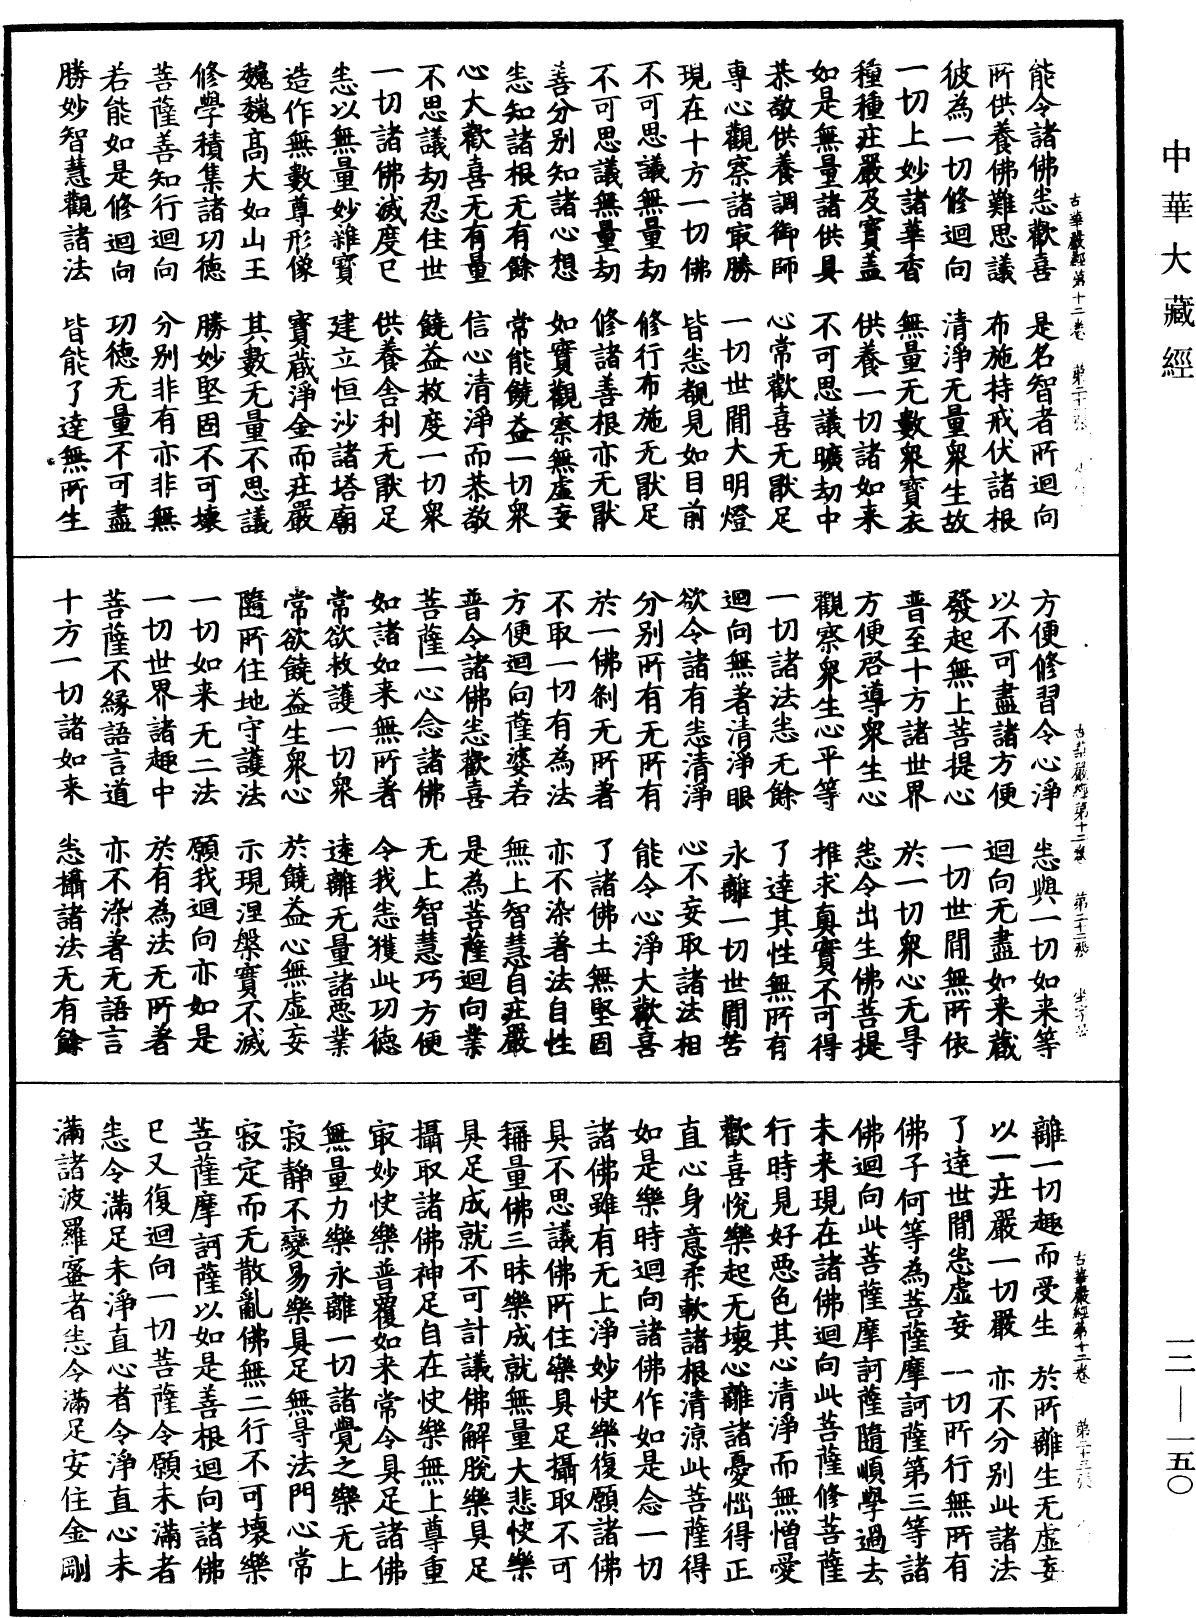 中華大藏經
古華嚴經第十二卷 第二十一張
能令諸佛悉歡喜 是名智者所迴向
所供養佛難思議 布施持戒伏諸根
彼為一切修迴向 清淨无量衆生故
一切上妙諸華香 無量无數衆寶衣
種種莊嚴及寶蓋 供養一切諸如来
如是無量諸供具 不可思議曠劫中
恭敬供養調御師 心常歡喜无猒足
專心觀察諸㝡勝 一切世間大明燈
現在十方一切佛 皆悉覩見如目前
不可思議無量劫 修行布施无猒足
不可思議無量劫 修諸善根亦无猒
善分别知諸心想 如實觀察無虛妄
悉知諸根无有餘 常能饒益一切衆
心大歡喜无有量 信心清淨而恭敬
不思議劫忍住世 饒益救度一切衆
一切諸佛滅度已 供養舎利无猒足
悉以無量妙雜寶 建立恒沙諸塔廟
造作無數尊形像 寶蔵淨金而莊嚴
巍巍髙大如山王 其數无量不思議
修學積集諸功徳 勝妙堅固不可壊
菩薩善知行迴向 分别非有亦非無
若能如是修迴向 功徳无量不可盡
勝妙智慧觀諸法 皆能了達無所生
古華嚴經第十二卷 第二十二張
方便修習令心淨 悉與一切如来等
以不可盡諸方便 迴向无盡如来蔵
發起無上菩提心 一切世間無所依
普至十方諸世界 於一切衆心无㝵
方便啓導衆生心 悉令出生佛菩提
觀察衆生心平等 推求真實不可得
一切諸法悉无餘 了達其性無所有
迴向無著清淨眼 永離一切世間苦
欲令諸有悉清淨 心不妄取諸法相
分别所有无所有 能令心淨大歡喜
於一佛剎无所著 了諸佛土無堅固
不取一切有為法 亦不染著法自性
方便迴向薩婆若 無上智慧自莊嚴
普令諸佛悉歡喜 是為菩薩迴向業
菩薩一心念諸佛 无上智慧巧方便
如諸如来無所著 令我悉獲此功徳
常欲救護一切衆 逺離无量諸惡業
常欲饒益生衆心 於饒益心無虛妄
隨所住地守護法 示現涅槃實不滅
一切如来无二法 願我迴向亦如是
一切世界諸趣中 於有為法无所著
菩薩不緣語言道 亦不染著无語言
十方一切諸如来 悉攝諸法无有餘
古華嚴經第十二卷 第二十三張
離一切趣而受生 於所離生无虛妄
以一莊嚴一切嚴 亦不分别此諸法
了達世間悉虛妄 一切所行無所有
佛子何等為菩薩摩訶薩第三等諸
佛迴向此菩薩摩訶薩隨順學過去
未来現在諸佛迴向此菩薩修菩薩
行時見好惡色其心清淨而無憎愛
歡喜悅樂起无壊心離諸憂惱得正
直心身意柔軟諸根清涼此菩薩得
如是樂時迴向諸佛作如是念一切
諸佛雖有无上淨妙快樂復願諸佛
具不思議佛所住樂具足攝取不可
稱量佛三昧樂成就無量大悲快樂
具足成就不可計議佛解脫樂具足
攝取諸佛神足自在快樂無上尊重
㝡妙快樂普覆如来常令具足諸佛
無量力樂永離一切諸覺之樂无上
寂静不變易樂具足無㝵法門心常
寂定而无散亂佛無二行不可壊樂
菩薩摩訶薩以如是善根迴向諸佛
已又復迴向一切菩薩令願未滿者
悉令滿足未淨直心者令淨直心未
滿諸波羅蜜者悉令滿足安住金剛
一三—一五〇